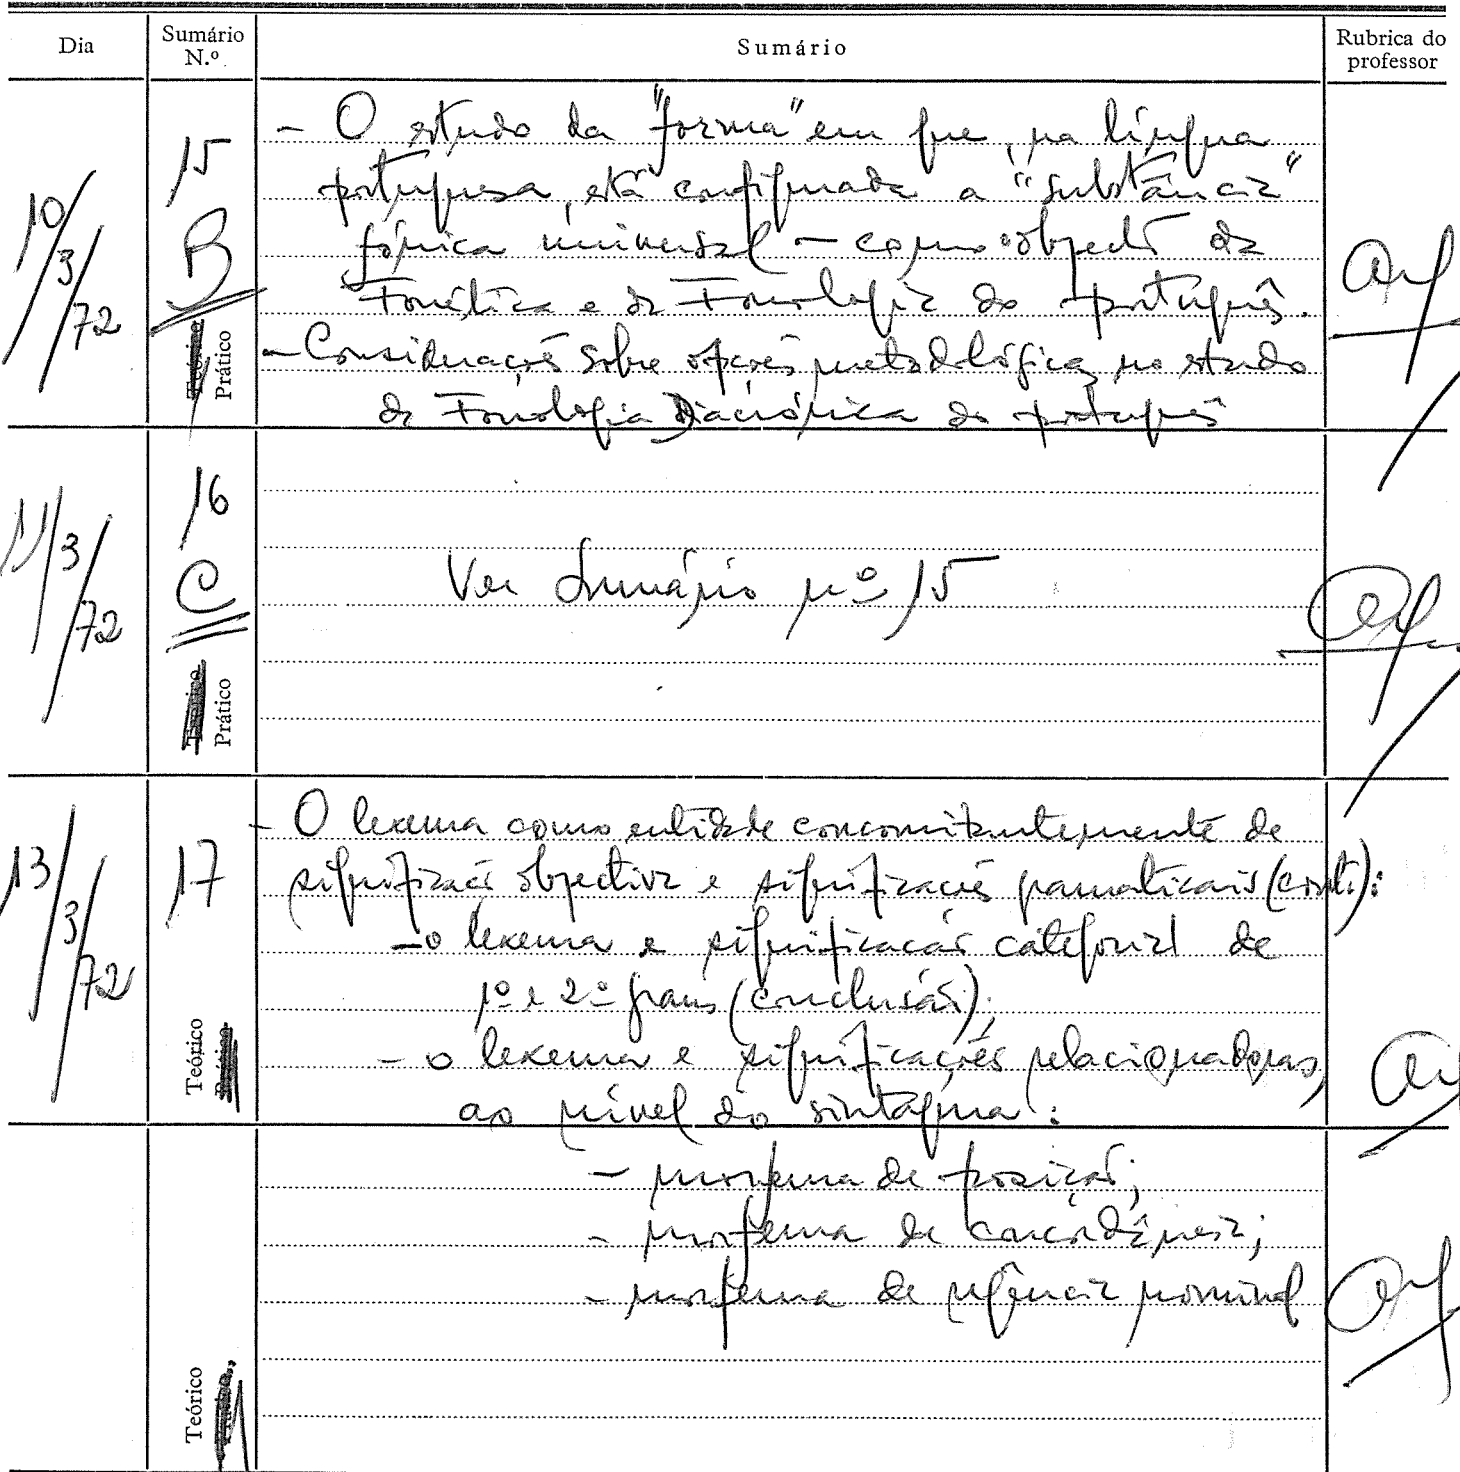 Dia
Sumário
N.º
Sumário
Rubrica do
professor
10/3/72
15
B
Prático
- O estudo da "forma" em que, na língua
portuguesa, está configurada a "substância"
fónica universal - como objecto da
Fonética e da Fonologia do português.
- Considerações sobre opções metodológicas no estudo
da Fonologia Diacrónica do português
11/3/72
16
C
Teórico
Prático
Ver Sumário nº 15
13/3/72
17
Teórico
Prático
- O lexema como entidade concomitantemente de
significação objectiva e significações gramaticais (cont.):
- o lexema e significação categorial de
1º e 2º graus (conclusão);
- o lexema e significações relacionadoras,
ao nível do sintagma:
- morfema de posição;
- morfema de concordância;
- morfema de regência nominal
Teórico